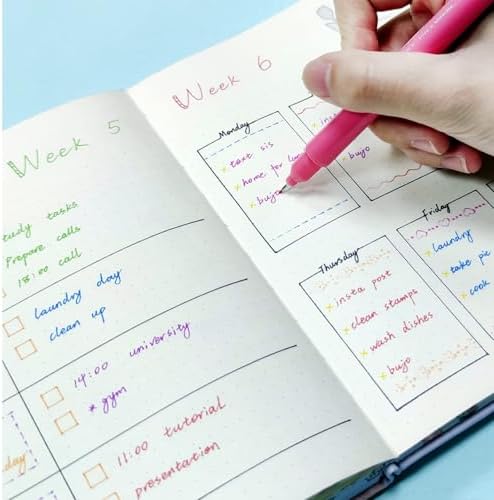 Week 5
tudy tasks
Prepare calls
18:00 call
laundry day
clean up
14:00 university
* gym
11:00 tutorial
presentation
day
Week 6
Monday
text sis
home for lun
bujo
bujo
Thursday
insta post
clean stamps
wash dishes
bujo
Friday
laundry
take pic
cook